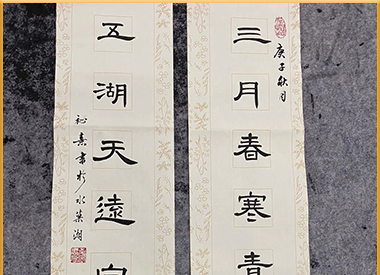 庚子秋月
三月春寒青
五湖天遠
書於水葉湖